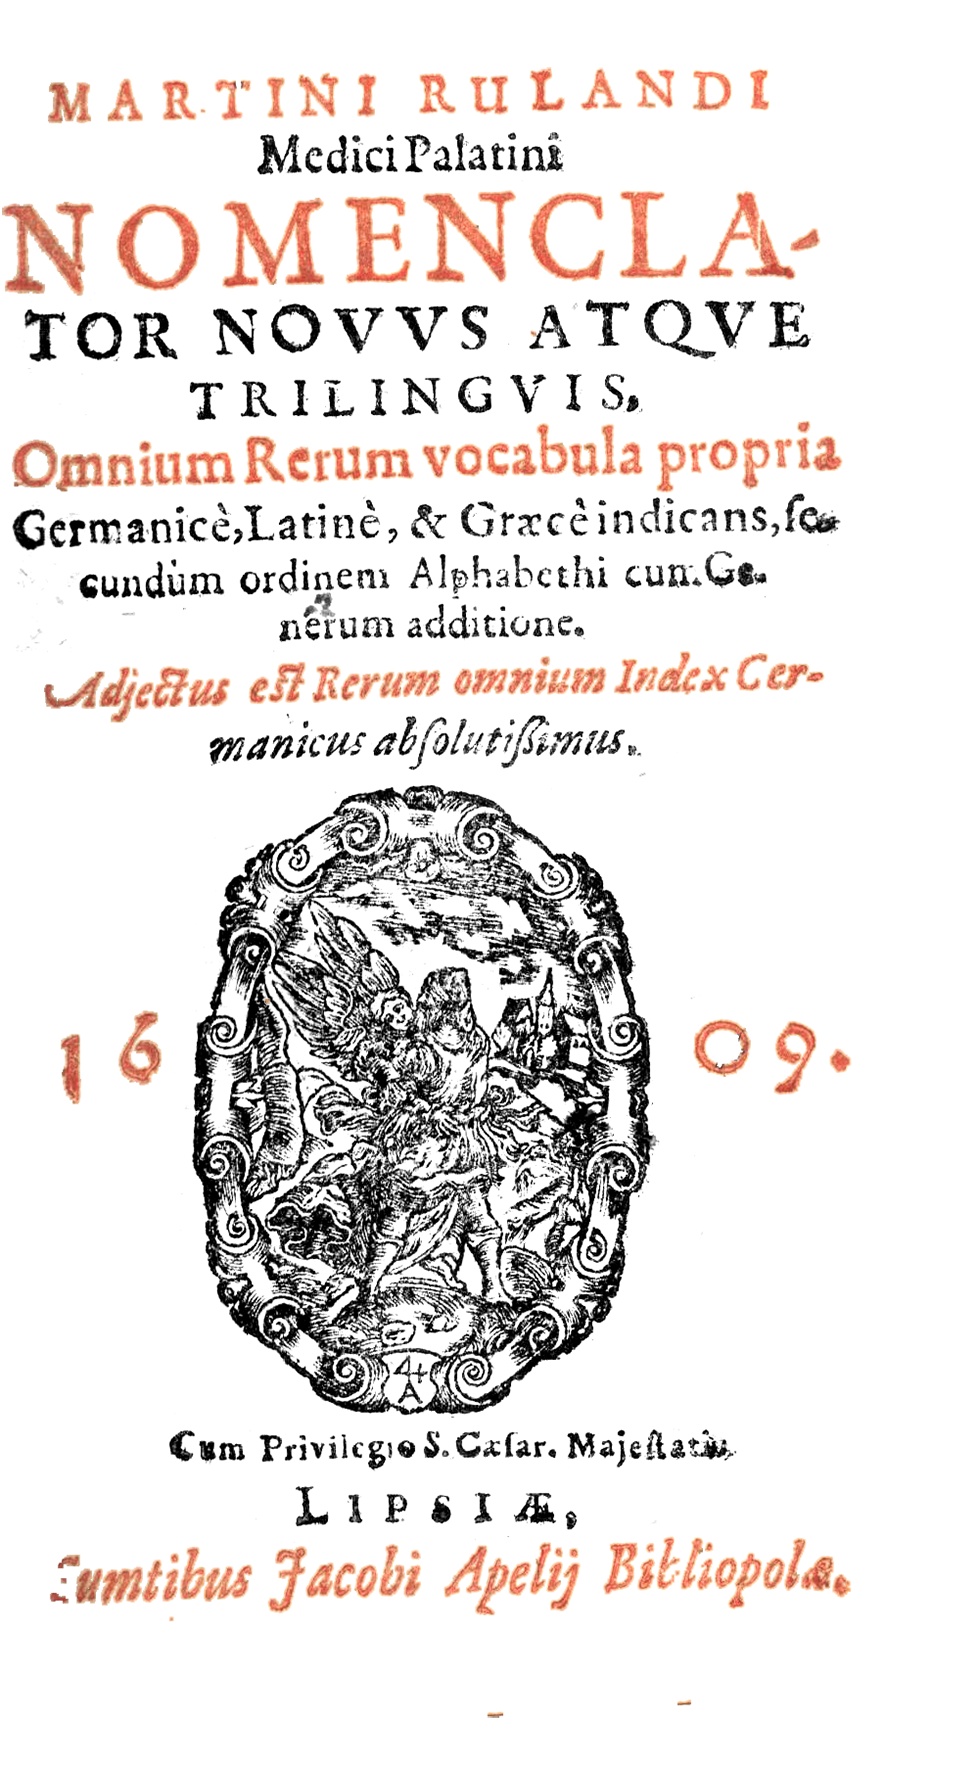 MARTINI RULANDI
Medici Palatini
NOMENCLA-
TOR NOVVS ATQVE
TRILINGVIS,
Omnium Rerum vocabula propria
Germanicè, Latinè, & Græcè indicans, ſe-
cundùm ordinem Alphabethi cum Ge-
nerum additione.
Adjectus est Rerum omnium Index Cer-
manicus abſolutiſſimus.
16 09.
4
A
Cum Privilegio S. Cæſar. Majeſtatis,
LIPSIÆ,
Sumtibus Jacobi Apelij Bibliopolæ.